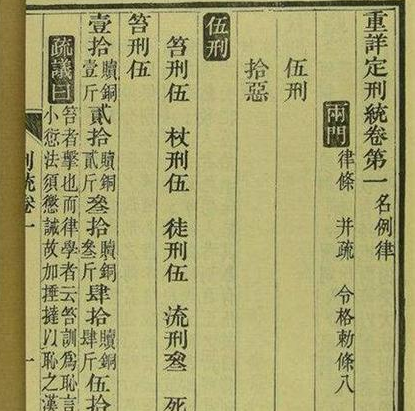 重詳定刑統卷第一 名例律
兩門 律條 并疏 令格勅條八
伍刑
拾惡
伍刑
笞刑伍 杖刑伍 徒刑伍 流刑叄 死
笞刑伍
壹拾贖銅壹斤貳拾贖銅貳斤叄拾贖銅叄斤肆拾贖銅肆斤伍拾
疏議曰笞者擊也而律學者云笞訓為恥言
小愆法須懲誡故加捶撻以恥之漢
刑統卷一 一